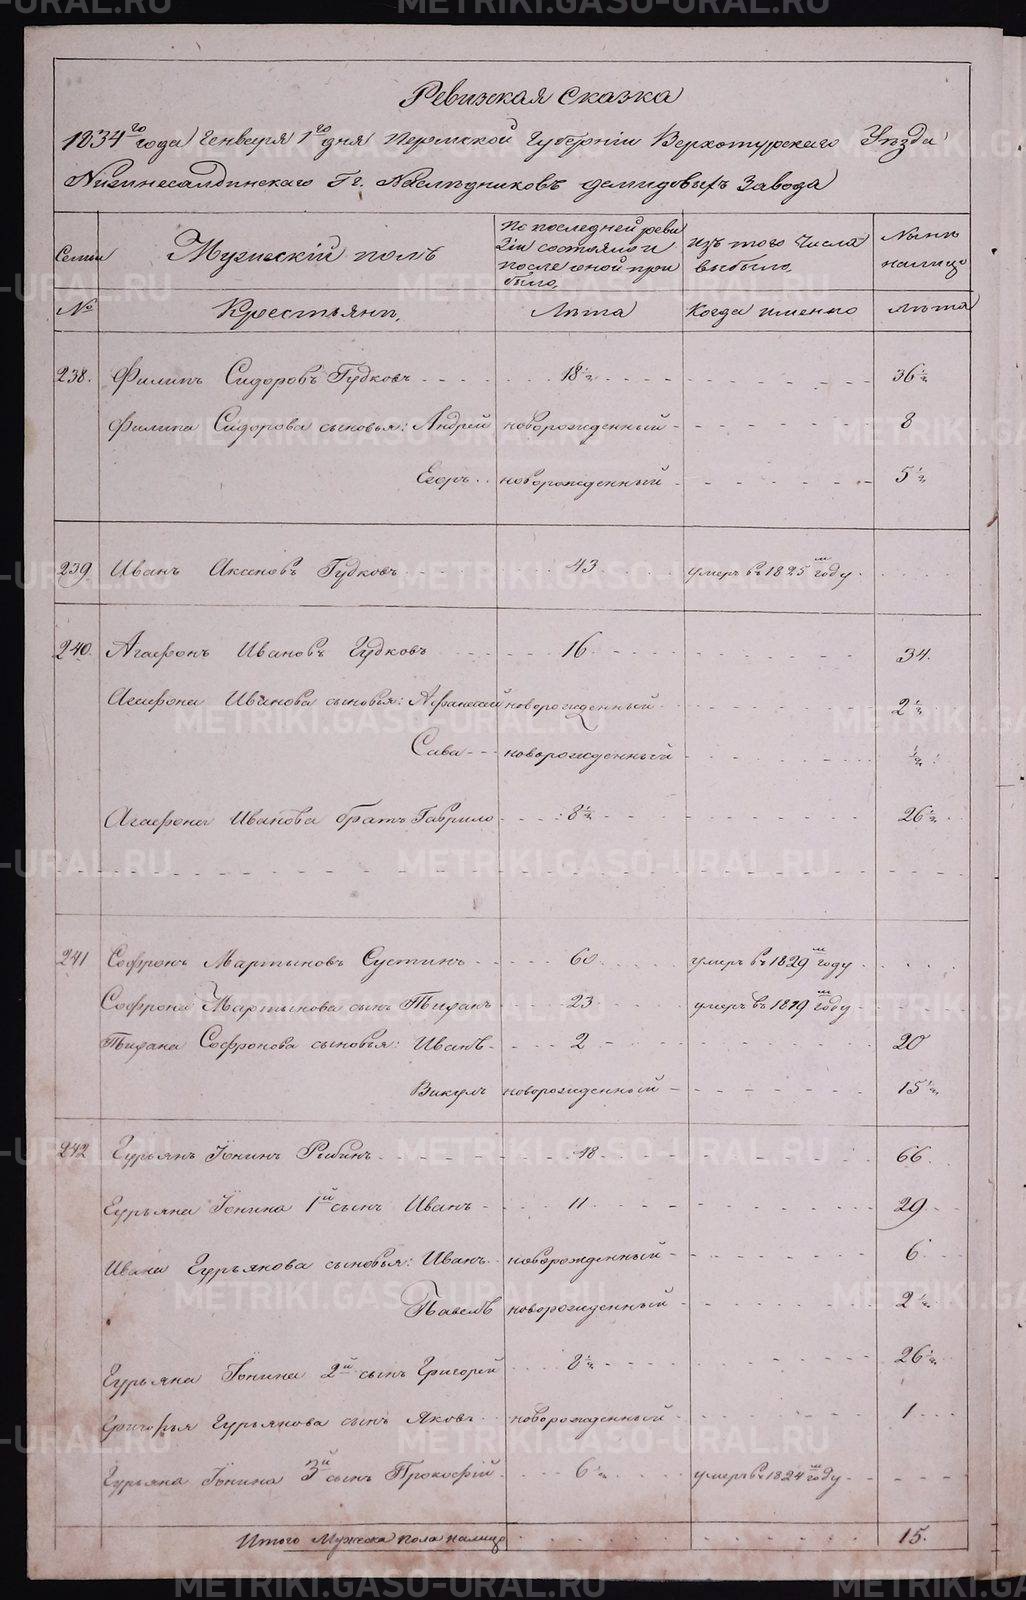 Ревизская сказка
1834го года Генваря 1го дня Пермской Губернiи Верхотурскаго Уѣзда
Нижнесалдинскаго Гг. Наслѣдниковъ Демидовыхъ Завода
Семьи
Мужескiй полъ
По последней реви
зiи состояло и
после оной при
было,
Изъ того числа
выбыло,
Нынѣ
налицо
№
Крестьянѣ,
Лѣта
Когда именно
лѣта
238. Филипъ Сидоровъ Гудковъ 18 ½ 36 ½
Филипа Сидорова сыновья: Андрей новорожденный 8
Егоръ новорожденный 5 ½
239 Иванъ Гудковъ 43 умеръ въ 1825м году
240. Агафонъ Ивановъ Гудковъ 16 34.
Агафона Иванова сыновья: Афанасий новорожденный 2 ½
Сава новорожденный ½
Агафона Иванова братъ Гаврило 8 ½ 26 ½
241 Софронъ Мартыновъ Сустинъ 60 умеръ въ 1829м году
Софрона Мартынова сынъ 23 умеръ въ 1819м году
Софронова сыновья: Иванъ 2 20
Викулъ новорожденный 15 ½
242 Гурьянъ Iонинъ 48 66
Гурьяна Iонина 1й сынъ Иванъ 11 29
Ивана Гурьянова сыновья: Иванъ новорожденный 6
Павелъ новорожденный 2 ½
Гурьяна Iонина 2й сынъ Григорей 8 ½ 26 ½
Григорья Гурьянова сынъ Яковъ новорожденный 1
Гурьяна Iонина 3й сынъ Прокофiй 6 ½ умеръ въ 1824м году
Итого Мужеска пола налицо 15.
METRIKI.GASO-URAL.RU